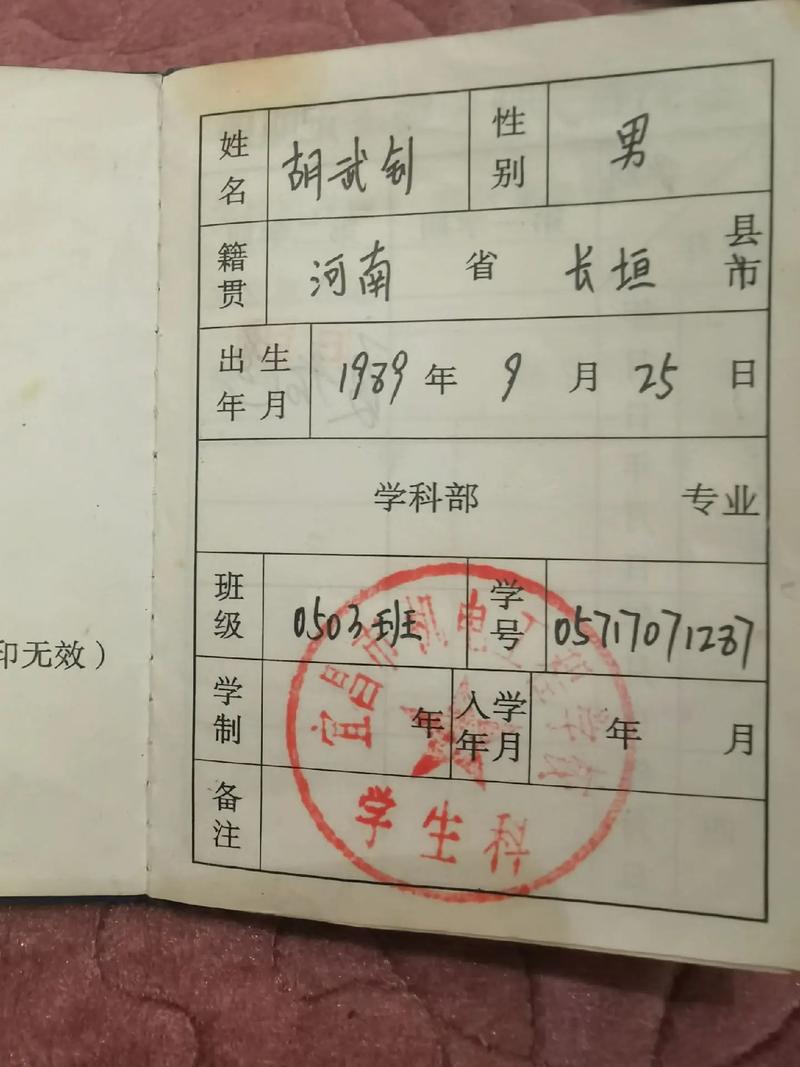 姓名 胡武钊 性别 男
籍贯 河南 省 长垣 县市
出生年月 1989 年 9 月 25 日
学科部 专业
班级 0503班 学号 05717071287
学制 年 入学年月 年 月
备注
宜昌市机电工程学校
学生科
印无效）